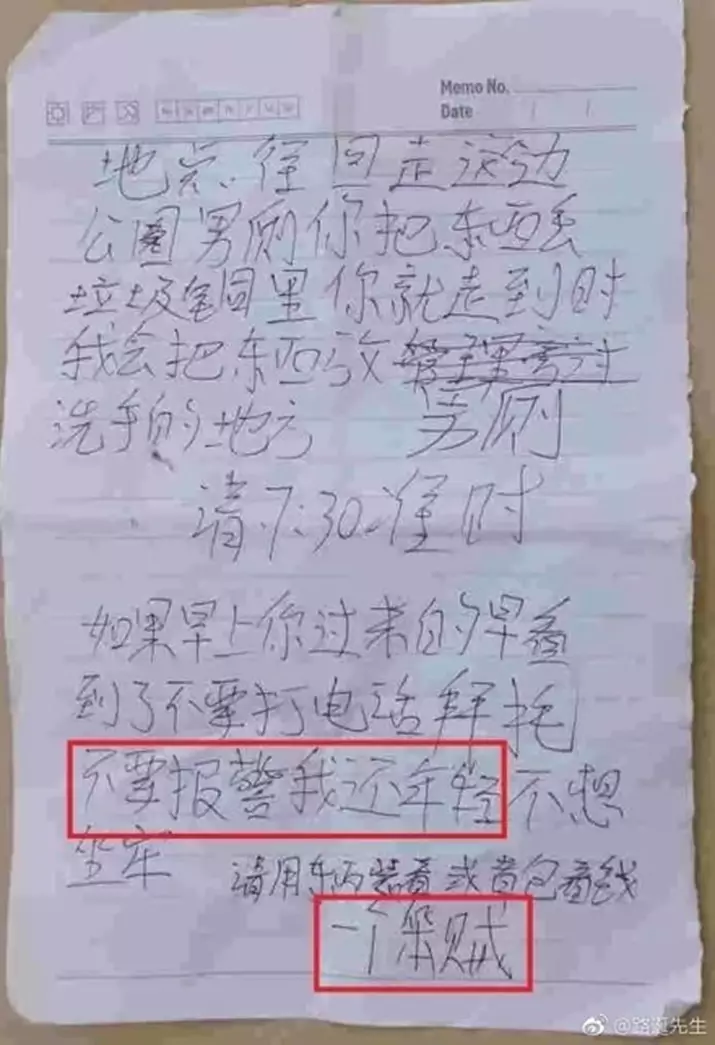 Memo No.
Date
地点.往回走这边
公園男厕你把东西丢
垃圾筒里你就走到时
我会把东西放
洗手的地方 男厕
请.7:30.准时
如果早上你过来的早看
到了不要打电话拜托
不要报警我还年轻不想
坐牢 请用东西装着或者包着钱
一个笨贼
@路遥先生